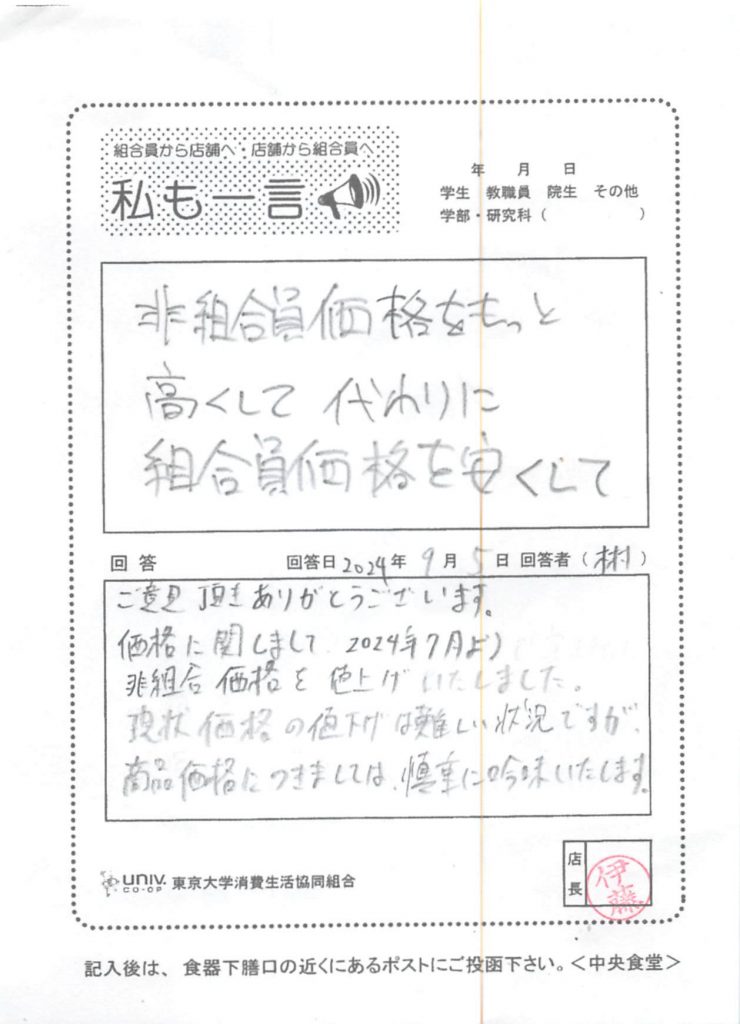 組合員から店舗へ・店舗から組合員へ
私も一言
年 月 日
学生 教職員 院生 その他
学部・研究科（ ）
非組合員価格をもっと
高くして 代わりに
組合員価格を安くして
回答 回答日 2024年 9月 5日 回答者（林）
ご意見頂きありがとうございます。
価格に関しまして、2024年7月より
非組合価格を値上げいたしました。
現状価格の値下げは難しい状況ですが、
商品価格につきましては、慎重に吟味いたします。
UNIV. CO-OP 東京大学消費生活協同組合
店長 伊藤
記入後は、食器下膳口の近くにあるポストにご投函下さい。＜中央食堂＞